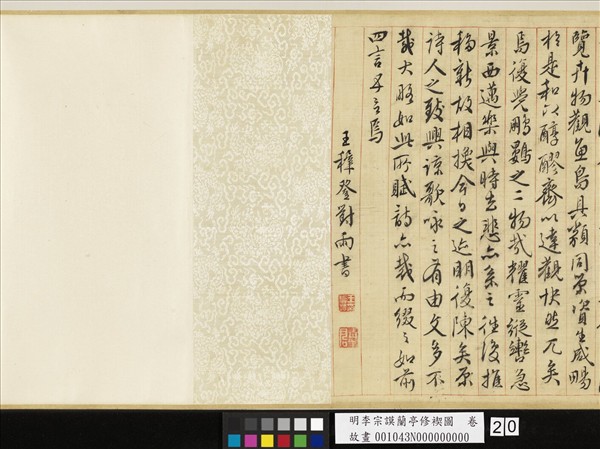 覽卉物觀魚鳥具類同榮資生咸暢
於是和以醇醪齊以達觀怏然兀矣
焉復覺鵬鷃之二物哉耀靈縱轡急
景西邁樂與時去悲亦系之往復推
移新故相換今日之迹明復陳矣原
詩人之致興諒歌咏之有由文多不
載大略如此所賦詩亦裁而綴之如前
四言五言焉
王穉登對雨書
明李宗謨蘭亭修禊圖 卷
故畫 001043N000000000
20